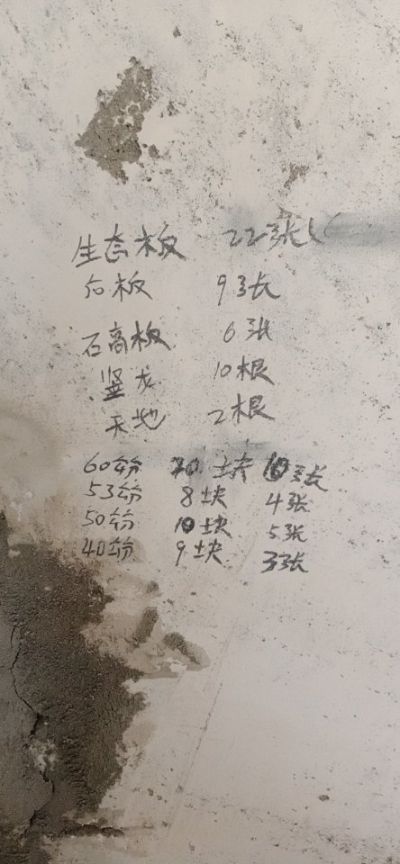 生态板 22张
后板 9张
石高板 6张
竖龙 10根
天地 2根
60分 20块 10张
53分 8块 4张
50分 10块 5张
40分 9块 3张